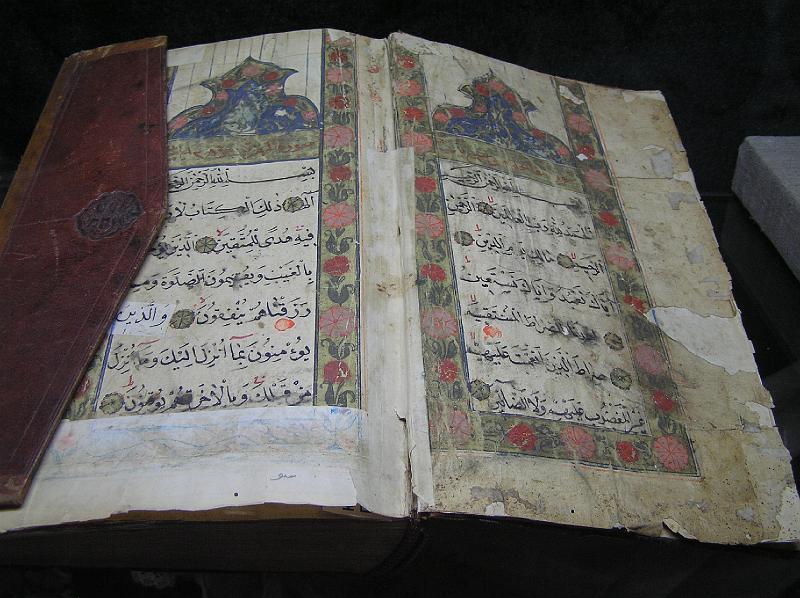 بسم الله الرحمن الرحيم
الحمد لله رب العالمين الرحمن
الرحيم مالك يوم الدين
اياك نعبد واياك نستعين
اهدنا الصراط المستقيم
صراط الذين انعمت عليهم
غير المغضوب عليهم ولا الضالين
بسم الله الرحمن الرحيم
الم ذلك الكتاب لا
فيه هدى للمتقين الذين
بالغيب ويقيمون الصلوة ومما
رزقناهم ينفقون والذين
يؤمنون بما انزل اليك وما انزل
من قبلك وبالاخرة هم يوقنون